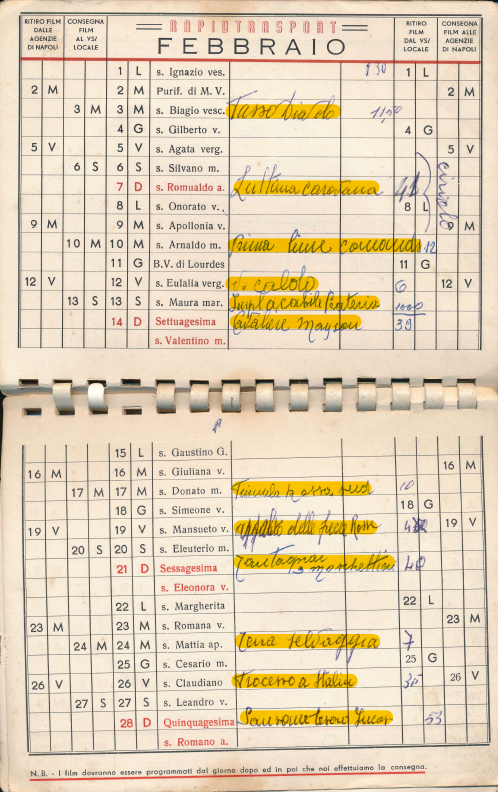 RITIRO FILM DALLE AGENZIE DI NAPOLI
CONSEGNA FILM AL VS/ LOCALE
RAPIDTRASPORT
FEBBRAIO
RITIRO FILM DAL VS/ LOCALE
CONSEGNA FILM ALLE AGENZIE DI NAPOLI
1 L s. Ignazio ves. 1 L
2 M 2 M Purif. di M. V. 2 M
3 M 3 M s. Biagio vesc. 11,50
4 G s. Gilberto v. 4 G
5 V 5 V s. Agata verg. 5 V
6 S 6 S s. Silvano m.
7 D s. Romualdo a. L'ultima carovana
8 L s. Onorato v. 8 L
circolo
9 M 9 M s. Apollonia v. 9 M
10 M 10 M s. Arnaldo m. Prima linea comando 12
11 G B.V. di Lourdes 11 G
12 V 12 V s. Eulalia verg. 6 12 V
13 S 13 S s. Maura mar. 1000
14 D Settuagesima 39
s. Valentino m.
15 L s. Gaustino G.
16 M 16 M s. Giuliana v. 16 M
17 M 17 M s. Donato m. 10
18 G s. Simeone v. 18 G
19 V 19 V s. Mansueto v. delle 19 V
20 S 20 S s. Eleuterio m.
21 D Sessagesima 40
s. Eleonora v.
22 L s. Margherita 22 L
23 M 23 M s. Romana v. 23 M
24 M 24 M s. Mattia ap. Terra selvaggia 7
25 G s. Cesario m. 25 G
26 V 26 V s. Claudiano 26 V
27 S 27 S s. Leandro v.
28 D Quinquagesima 53
s. Romano a.
N. B. - I film dovranno essere programmati dal giorno dopo ed in poi che noi effettuiamo la consegna.